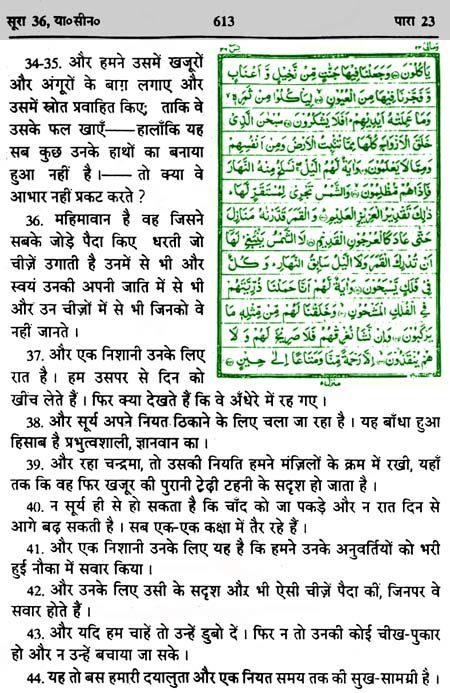 सूरा 36, या०सीन०
613
पारा 23
34-35. और हमने उसमें खजूरों
और अंगूरों के बाग़ लगाए और
उसमें स्रोत प्रवाहित किए; ताकि वे
उसके फल खाएँ—— हालाँकि यह
सब कुछ उनके हाथों का बनाया
हुआ नहीं है।—— तो क्या वे
आभार नहीं प्रकट करते ?
36. महिमावान है वह जिसने
सबके जोड़े पैदा किए धरती जो
चीज़ें उगाती है उनमें से भी और
स्वयं उनकी अपनी जाति में से भी
और उन चीज़ों में से भी जिनको वे
नहीं जानते ।
37. और एक निशानी उनके लिए
रात है । हम उसपर से दिन को
खींच लेते हैं । फिर क्या देखते हैं कि वे अँधेरे में रह गए ।
38. और सूर्य अपने नियत ठिकाने के लिए चला जा रहा है । यह बाँधा हुआ
हिसाब है प्रभुत्वशाली, ज्ञानवान का ।
39. और रहा चन्द्रमा, तो उसकी नियति हमने मंज़िलों के क्रम में रखी, यहाँ
तक कि वह फिर खजूर की पुरानी टेढ़ी टहनी के सदृश हो जाता है ।
40. न सूर्य ही से हो सकता है कि चाँद को जा पकड़े और न रात दिन से
आगे बढ़ सकती है । सब एक-एक कक्षा में तैर रहे हैं ।
41. और एक निशानी उनके लिए यह है कि हमने उनके अनुवर्तियों को भरी
हुई नौका में सवार किया ।
42. और उनके लिए उसी के सदृश और भी ऐसी चीज़ें पैदा कीं, जिनपर वे
सवार होते हैं ।
43. और यदि हम चाहें तो उन्हें डुबो दें । फिर न तो उनकी कोई चीख-पुकार
हो और न उन्हें बचाया जा सके ।
44. यह तो बस हमारी दयालुता और एक नियत समय तक की सुख-सामग्री है ।
يأكلون وجعلنا فيها جنت من نخيل و أعناب
و فجرنا فيها من العيون ليأكلوا من ثمره
وما عملته أيديهم أفلا يشكرون سبحن الذي
خلق الأزواج كلها مما تنبت الأرض ومن أنفسهم
ومما لا يعلمون وآية لهم الليل نسلخ منه النهار
فإذا هم مظلمون والشمس تجري لمستقر لها
ذلك تقدير العزيز العليم والقمر قدرنه منازل
حتى عاد كالعرجون القديم لا الشمس ينبغي لها
أن تدرك القمر ولا الليل سابق النهار وكل
في فلك يسبحون وآية لهم أنا حملنا ذريتهم
في الفلك المشحون وخلقنا لهم من مثله ما
يركبون وإن نشأ نغرقهم فلا صريخ لهم ولا
هم ينقذون إلا رحمة منا ومتاعا إلى حين